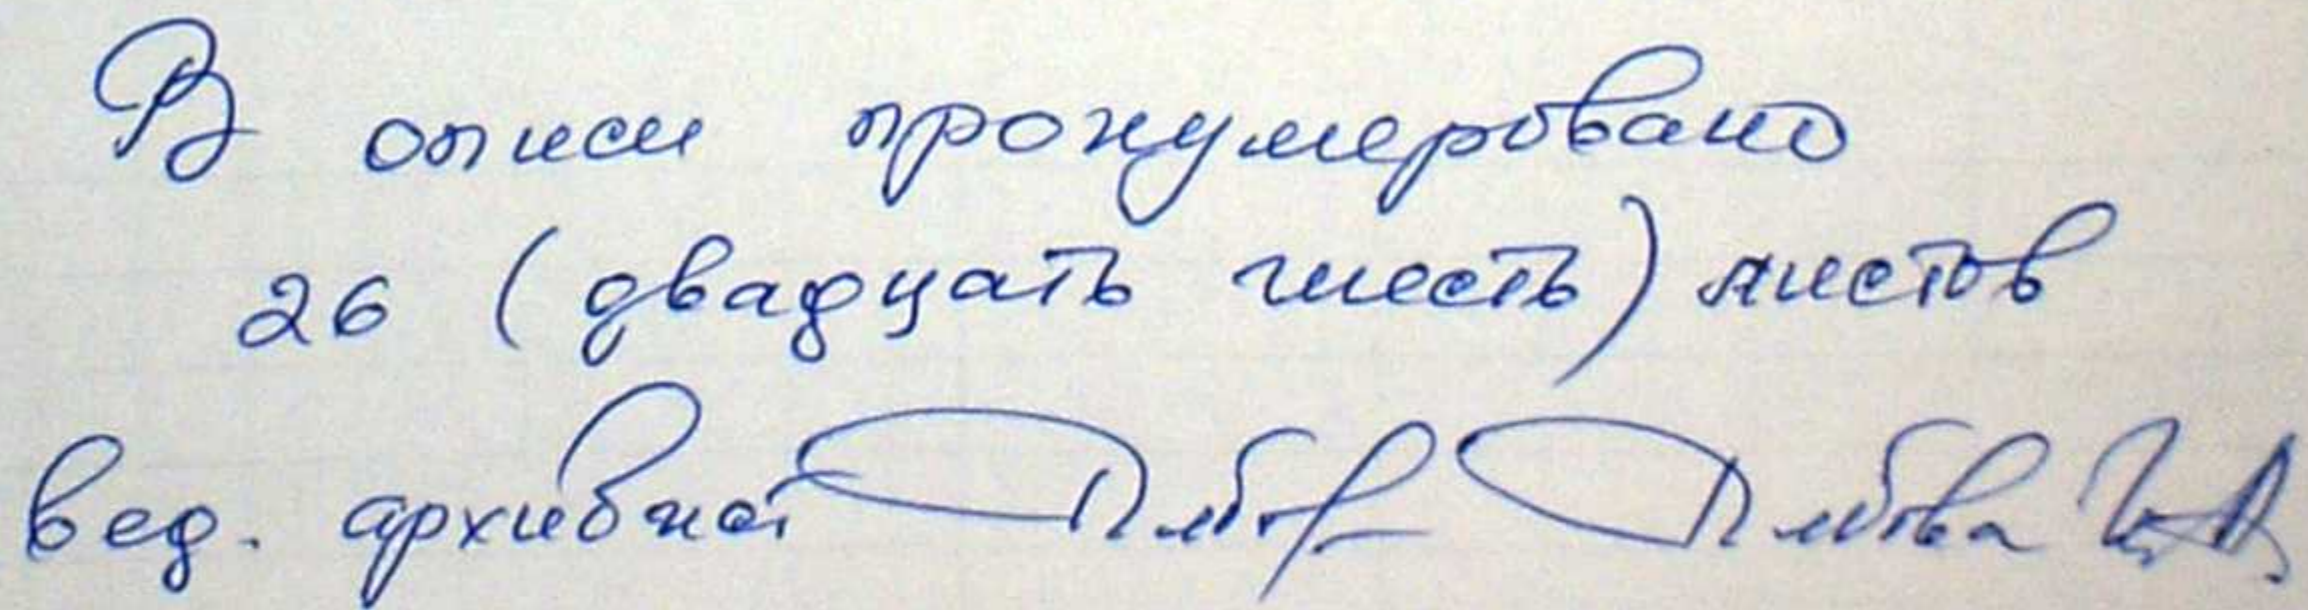 В описи пронумеровано
26 (двадцать шесть) листов
вед. архивист